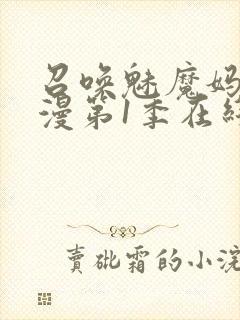 召唤魅魔妈
漫第1季在线
賣砒霜的小浣